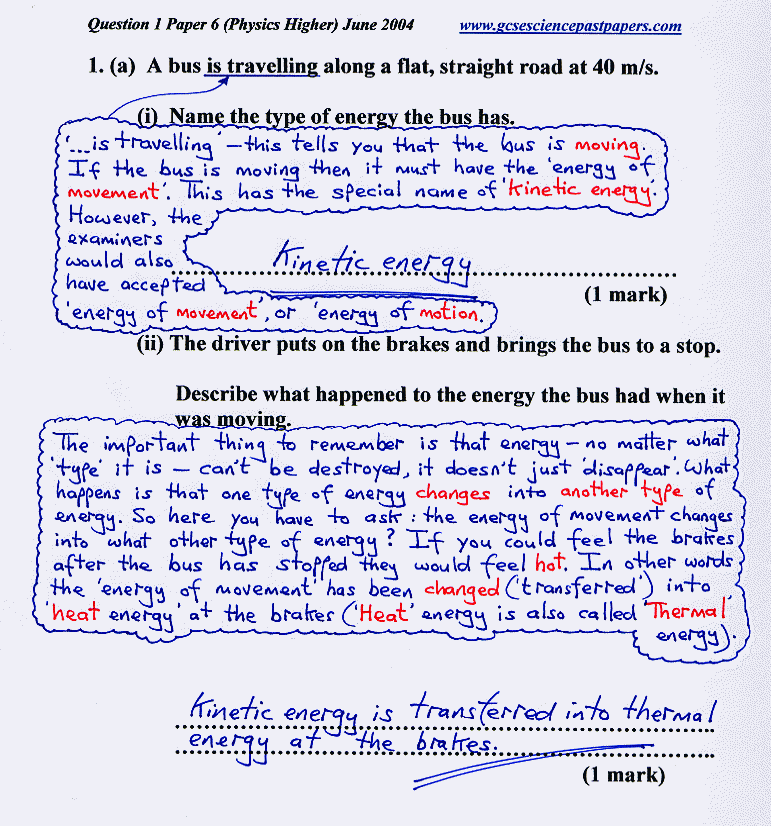 Question 1 Paper 6 (Physics Higher) June 2004 www.gcsesciencepastpapers.com
1. (a) A bus is travelling along a flat, straight road at 40 m/s.
(i) Name the type of energy the bus has.
'...is travelling' – this tells you that the bus is moving.
If the bus is moving then it must have the 'energy of
movement'. This has the special name of 'kinetic energy'.
However, the
examiners
would also
have accepted
'energy of movement', or 'energy of motion.
Kinetic energy
(1 mark)
(ii) The driver puts on the brakes and brings the bus to a stop.
Describe what happened to the energy the bus had when it
was moving.
The important thing to remember is that energy – no matter what
'type' it is – can't be destroyed, it doesn't just 'disappear'. What
happens is that one type of energy changes into another type of
energy. So here you have to ask : the energy of movement changes
into what other type of energy? If you could feel the brakes
after the bus has stopped they would feel hot. In other words
the 'energy of movement' has been changed ('transferred') into
'heat energy' at the brakes ('Heat' energy is also called 'Thermal'
energy).
Kinetic energy is transferred into thermal
energy at the brakes.
(1 mark)